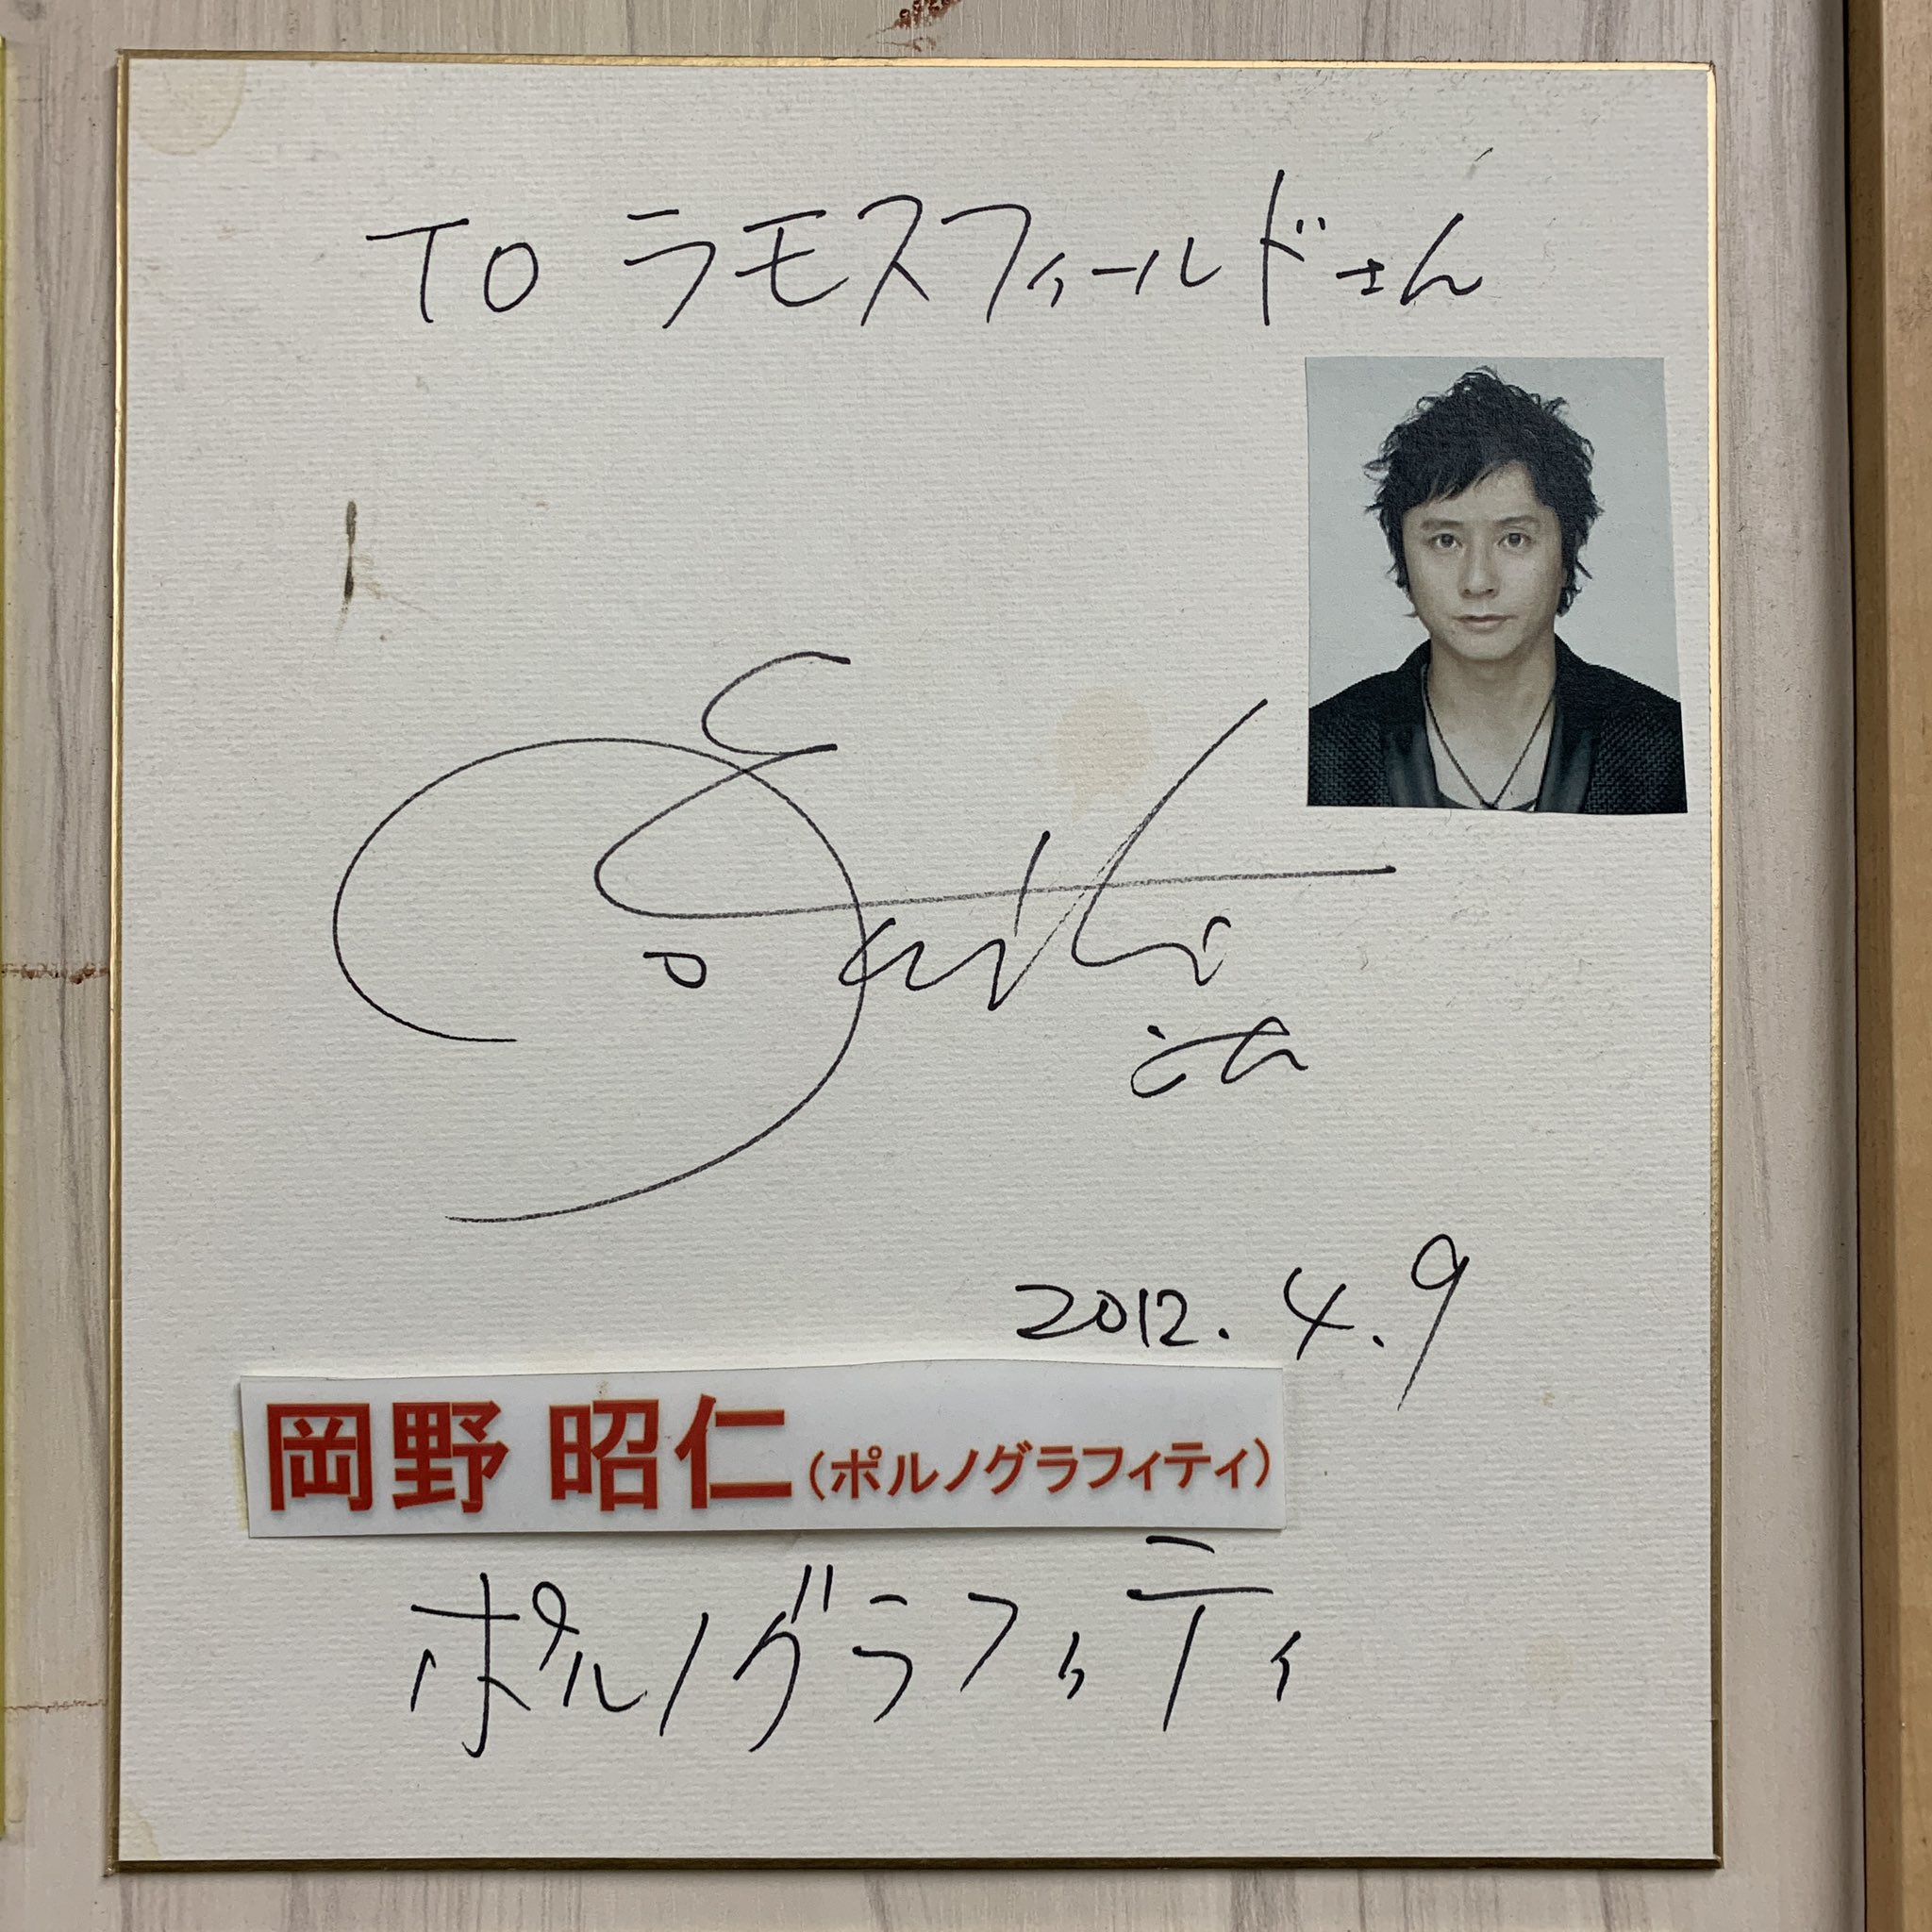 TO ラモスフィールドさん
2012.4.9
岡野 昭仁(ポルノグラフィティ)
ポルノグラフィティ